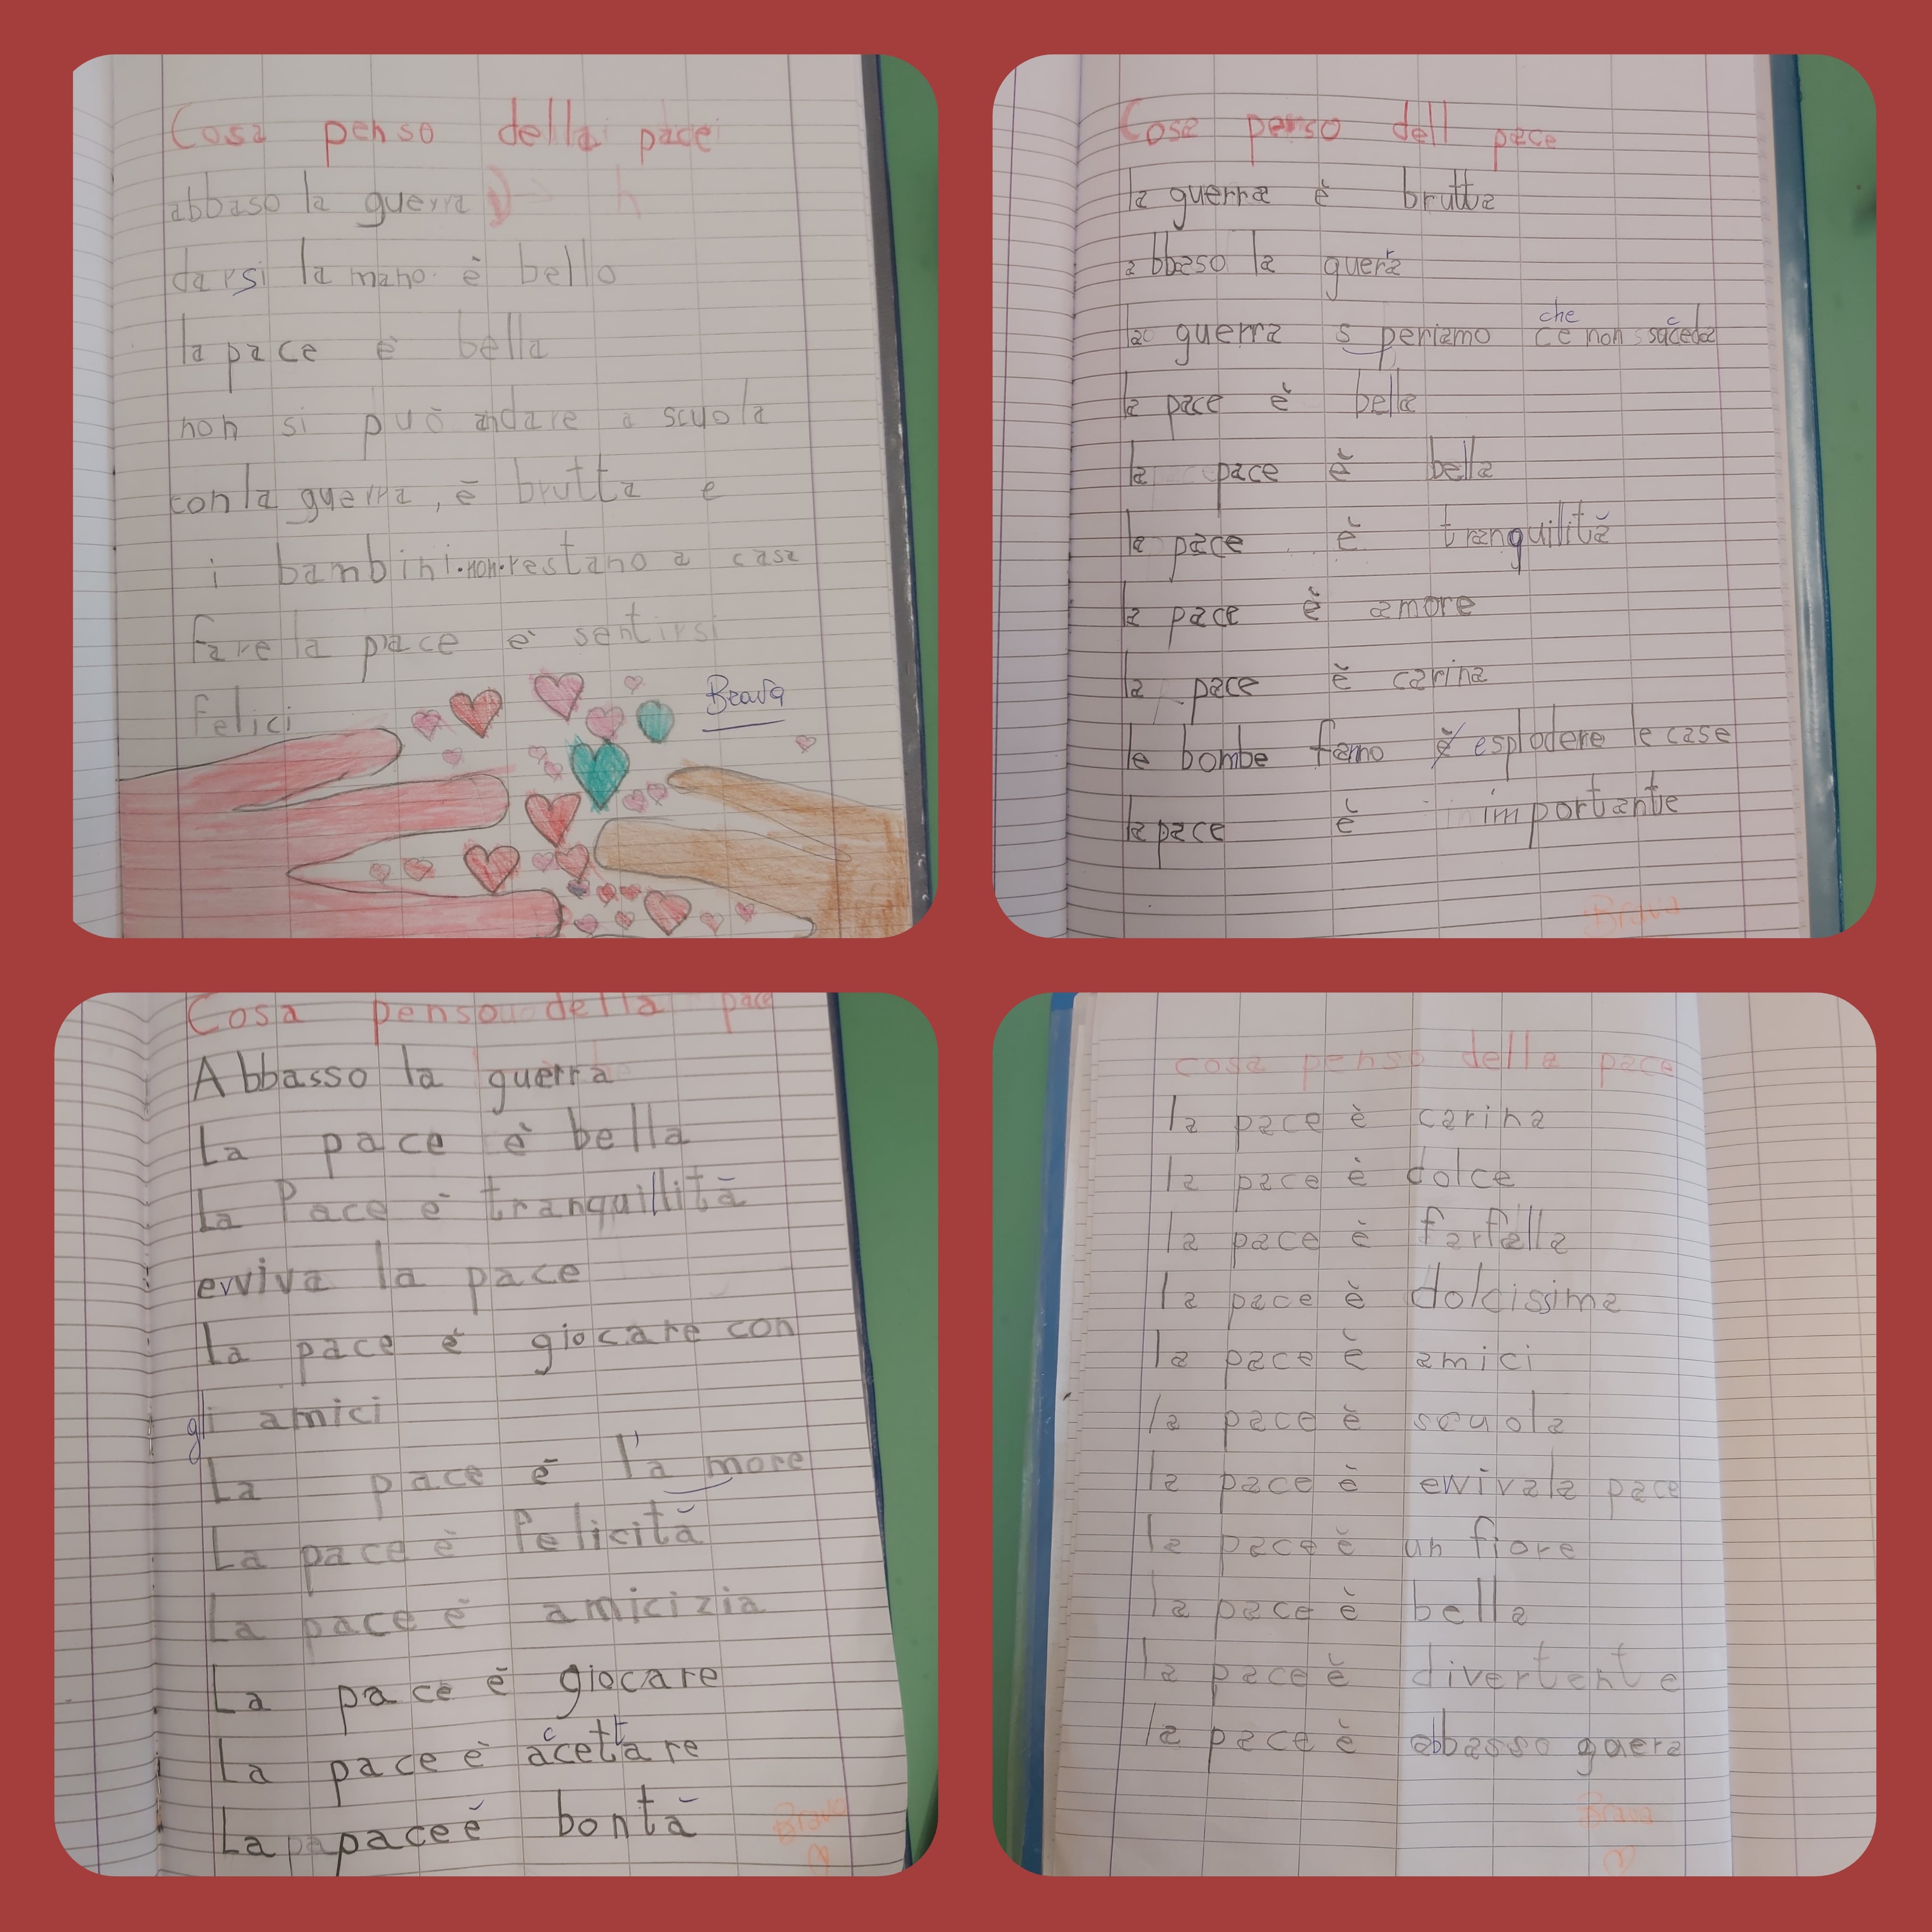 Cosa penso della pace
abbaso la guerra
darsi la mano è bello
la pace è bella
non si può andare a scuola
con la guerra, è brutta e
i bambini non restano a casa
fare la pace è sentirsi
felici
Brava
Cosa penso dell pace
la guerra è brutta
abbaso la guerra
la guerra speriamo che
ce non succeda
la pace è bella
la pace è bella
la pace è tranquilità
la pace è amore
la pace è carina
le bombe fanno è esplodere le case
la pace è importante
Brava
Cosa penso della pace
Abbasso la guerra
La pace è bella
La Pace è tranquillità
evviva la pace
La pace è giocare con
gli amici
La pace è l'a more
La pace è felicità
La pace è amicizia
La pace è giocare
La pace è accettare
La pa pace è bontà
Brava
cosa penso della pace
la pace è carina
la pace è dolce
la pace è farfalla
la pace è dolcissima
la pace è amici
la pace è scuola
la pace è evviva la pace
la pace è un fiore
la pace è bella
la pace è divertente
la pace è abbasso guera
Brava